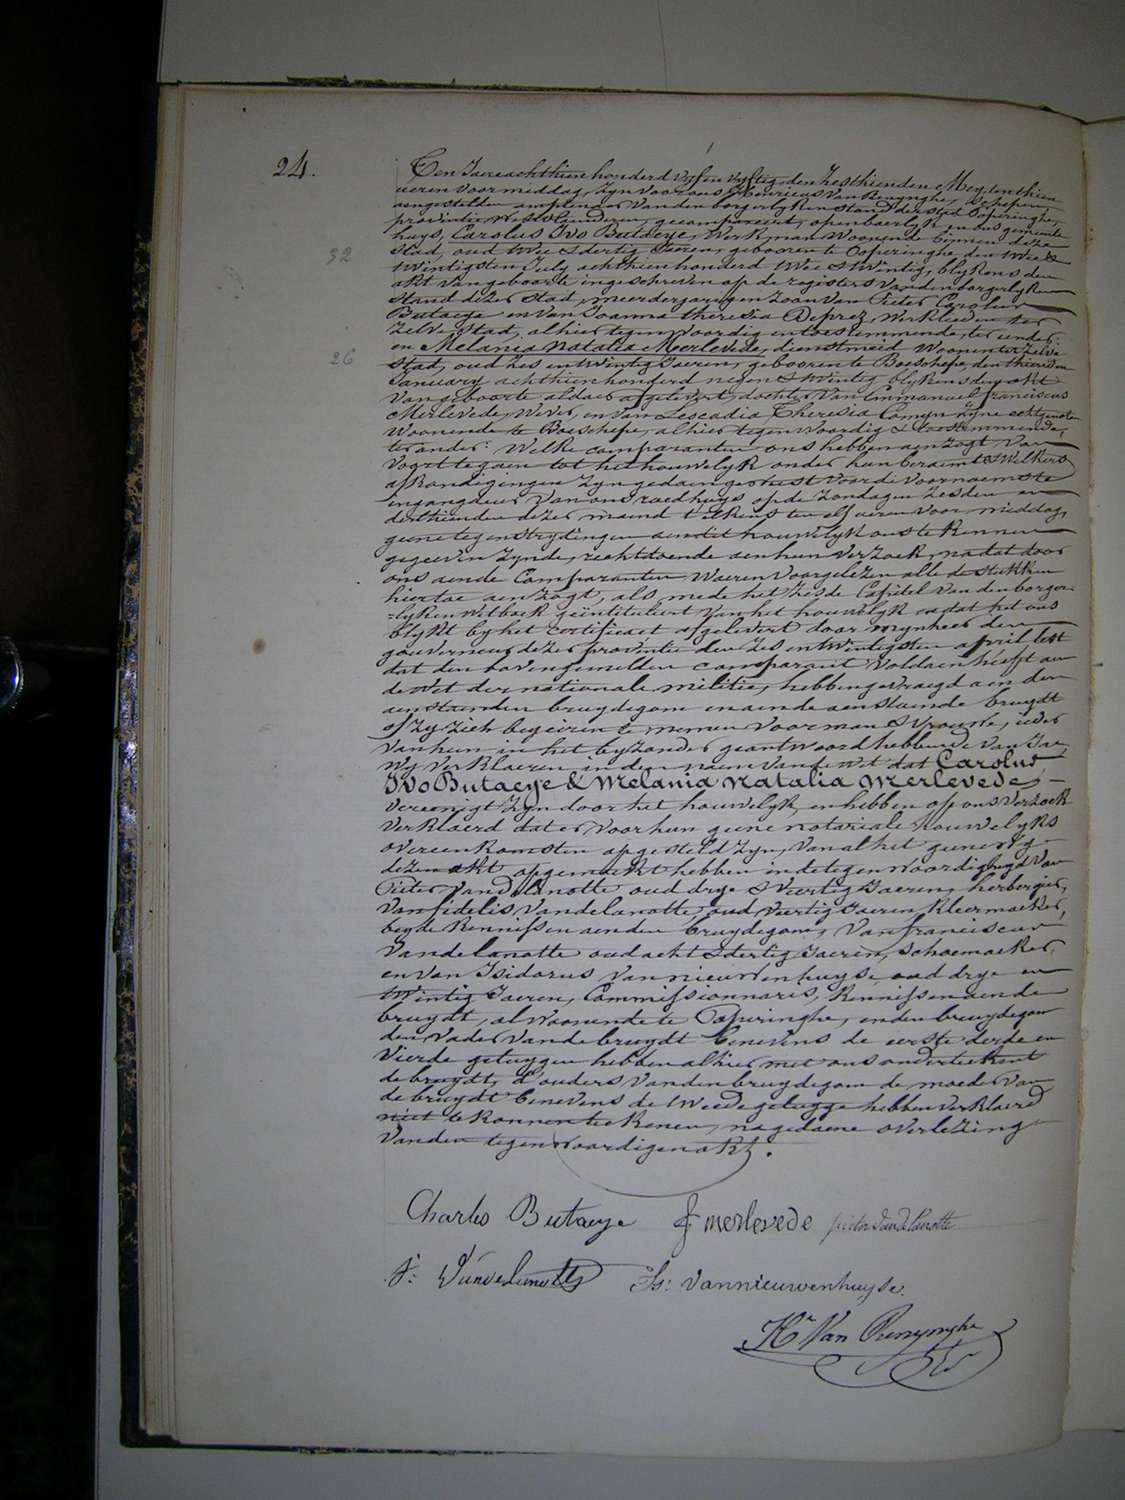 24.
Den Jaere achthien honderd vyf en vyftig, den zesthienden Mey, ten thien
ueren voormiddag, zyn voor ons Henricus Van Renynghe, schepen,
aengestelden amptenaer van den borgerlyken stand der stad Poperinghe,
provintie West-Vlaenderen, gecompareert, openbaerlyk en ons gemeente
huys, Carolus Ivo Butaeye, Werkman woonende binnen deze
32
stad, oud twee & dertig Jaeren, gebooren te Poperinghe den twee &
twintigsten July achthien honderd twee & twintig, blykens den
akt van geboorte ingeschreven op de registers van den borgerlyken
Stand dezer Stad, meerderjarigen zoon van Pieter Carolus
Butaeye en van Joanna theresia Deprez, Werklieden ter
zelve stad, alhier tegenwoordig en toestemmende, ter eender:
en Melania Natalia Merlevede, dienstmeid woonende ter zelve
26
stad, oud zes en twintig Jaeren, gebooren te Boeschepe, den thienden
January achthien honderd negen & twintig blykens den akt
van geboorte aldaer afgelevert, dochter van Emmanuel franciscus
Merlevede, Wever, en van Leocadia Theresia Camyn zyne echtgenote
Woonende te Boeschepe, alhier tegenwoordig & toestemmende,
ter ander: Welke comparanten ons hebben aenzogt van
voort te gaen tot het houwelyk onder hun beraemt & Welkers
afkondigingen zyn gedaen geweest voor de voornaemste
ingangdeur van ons raedhuys op de zondagen zesden en
derthienden dezer maend t'elkens ten elf ueren voor middag,
geene tegenstrydingen aen dit houwelyk ons te kennen
gegeeven zynde, rechtdoende aen hun verzoek, na dat door
ons aende Comparanten Waeren voorgelezen alle de stukken
hiertoe aenzogt, als mede het zesde Capittel van den borger-
=lyken wetboek geïntituleert van het houwelyk en dat het ons
blykt by het certificaet afgelevert door mynheer den
gouverneur dezer provintie den zes en twintigsten april lest
dat den bovengemelden comparant voldaen heeft aen
de wet der nationale militie, hebben gevraegd aen den
aenstaenden bruydegom en aende aenstaende bruydt
of zy zich begeiren te nemen voor man & vrouwe, ieder
van hun in het byzonder geantwoord hebbende van Ja,
Wy verklaeren in den naem vande wet dat Carolus
Ivo Butaeye & Melania Natalia Merlevede,
Vereenigt zyn door het houwelyk, en hebben op ons verzoek
verklaerd dat er voor hun geene notariale houwelyks
overeenkomsten opgesteld zyn, van al het gene wy
dezen akt opgemaekt hebben in de tegenwoordigheyd van
Pieter Vandelanotte oud drye & veertig Jaeren, herbergier,
Van fidelis Vandelanotte, oud veertig Jaeren kleermaeker,
beyde kennissen aen den bruydegom, Van franciscus
Vandelanotte oud acht & dertig Jaeren, schoemaeker,
en van Isidorus Vannieuwenhuyse, oud drye en
twintig Jaeren, Commissionnaris, kennissen aen de
bruydt, al woonende te Poperinghe, en den bruydegom
den vader van de bruydt benevens de eerste derde en
vierde getuygen hebben alhier met ons onderteekent
de bruydt, d'ouders van den bruydegom de moeder van
de bruydt benevens de tweede getuyge hebben verklaerd
niet te konnen teekenen, na gedaene overlezing
van den tegenwoordigen akt.
Charles Butaeye f merlevede pieter Vandelanotte
f: Vandelanotte Is: Vannieuwenhuyse.
Hri Van Renynghe